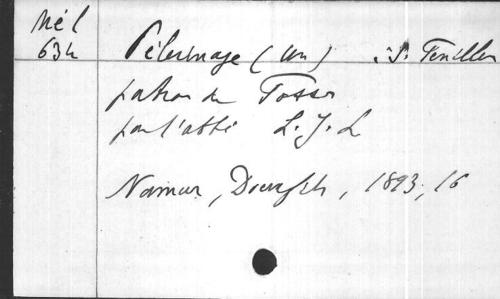 Mél
634
Pèlerinage (un) à S. Feuillen
patron de Fosses
par l'abbé L. J. L
Namur, Douxfils, 1893, 16